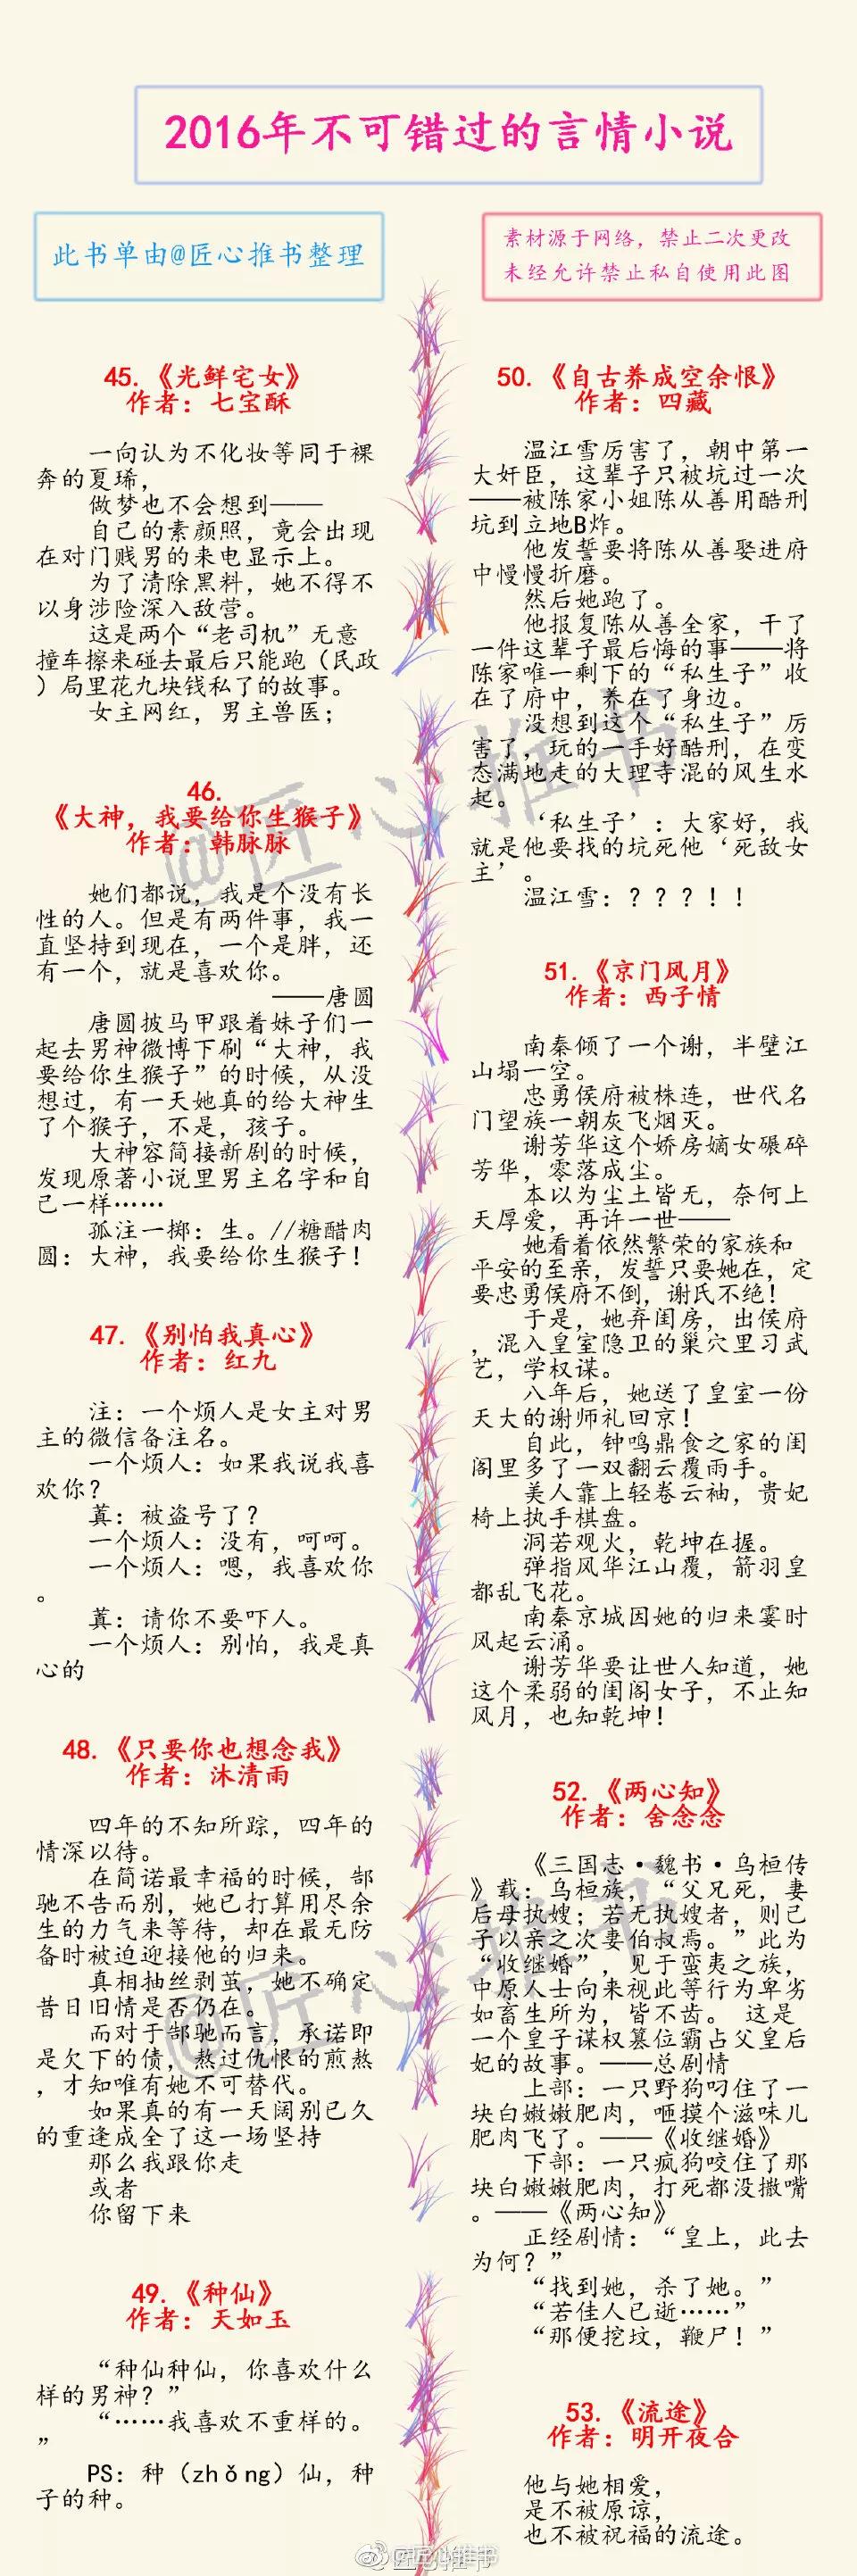 2016年不可错过的言情小说
此书单由@匠心推书整理
素材源于网络，禁止二次更改
未经允许禁止私自使用此图
45.《光鲜宅女》
作者：七宝酥
一向认为不化妆等同于裸
奔的夏琋，
做梦也不会想到——
自己的素颜照，竟会出现
在对门贱男的来电显示上。
为了清除黑料，她不得不
以身涉险深入敌营。
这是两个“老司机”无意
撞车擦来碰去最后只能跑（民政
）局里花九块钱私了的故事。
女主网红，男主兽医；
46.
《大神，我要给你生猴子》
作者：韩脉脉
她们都说，我是个没有长
性的人。但是有两件事，我一
直坚持到现在，一个是胖，还
有一个，就是喜欢你。
——唐圆
唐圆披马甲跟着妹子们一
起去男神微博下刷“大神，我
要给你生猴子”的时候，从没
想过，有一天她真的给大神生
了个猴子，不是，孩子。
大神容简接新剧的时候，
发现原著小说里男主名字和自
己一样……
孤注一掷：生。//糖醋肉
圆：大神，我要给你生猴子！
47.《别怕我真心》
作者：红九
注：一个烦人是女主对男
主的微信备注名。
一个烦人：如果我说我喜
欢你？
萁：被盗号了？
一个烦人：没有，呵呵。
一个烦人：嗯，我喜欢你
。
萁：请你不要吓人。
一个烦人：别怕，我是真
心的
48.《只要你也想念我》
作者：沐清雨
四年的不知所踪，四年的
情深以待。
在简诺最幸福的时候，郜
驰不告而别，她已打算用尽余
生的力气来等待，却在最无防
备时被迫迎接他的归来。
真相抽丝剥茧，她不确定
昔日旧情是否仍在。
而对于郜驰而言，承诺即
是欠下的债，熬过仇恨的煎熬
，才知唯有她不可替代。
如果真的有一天阔别已久
的重逢成全了这一场坚持
那么我跟你走
或者
你留下来
49.《种仙》
作者：天如玉
“种仙种仙，你喜欢什么
样的男神？”
“……我喜欢不重样的。
”
PS：种（zhǒng）仙，种
子的种。
50.《自古养成空余恨》
作者：四藏
温江雪厉害了，朝中第一
大奸臣，这辈子只被坑过一次
——被陈家小姐陈从善用酷刑
坑到立地B炸。
他发誓要将陈从善娶进府
中慢慢折磨。
然后她跑了。
他报复陈从善全家，干了
一件这辈子最后悔的事——将
陈家唯一剩下的“私生子”收
在了府中，养在了身边。
没想到这个“私生子”厉
害了，玩的一手好酷刑，在变
态满地走的大理寺混的风生水
起。
‘私生子’：大家好，我
就是他要找的坑死他‘死敌女
主’。
温江雪：？？？！！
51.《京门风月》
作者：西子情
南秦倾了一个谢，半壁江
山塌一空。
忠勇侯府被株连，世代名
门望族一朝灰飞烟灭。
谢芳华这个娇房嫡女碾碎
芳华，零落成尘。
本以为尘土皆无，奈何上
天厚爱，再许一世——
她看着依然繁荣的家族和
平安的至亲，发誓只要她在，定
要忠勇侯府不倒，谢氏不绝！
于是，她弃闺房，出侯府
，混入皇室隐卫的巢穴里习武
艺，学权谋。
八年后，她送了皇室一份
天大的谢师礼回京！
自此，钟鸣鼎食之家的闺
阁里多了一双翻云覆雨手。
美人靠上轻卷云袖，贵妃
椅上执手棋盘。
洞若观火，乾坤在握。
弹指风华江山覆，箭羽皇
都乱飞花。
南秦京城因她的归来霎时
风起云涌。
谢芳华要让世人知道，她
这个柔弱的闺阁女子，不止知
风月，也知乾坤！
52.《两心知》
作者：舍念念
《三国志·魏书·乌桓传
》载：乌桓族，“父兄死，妻
后母执嫂；若无执嫂者，则己
子以亲之次妻伯叔焉。”此为
“收继婚”，见于蛮夷之族，
中原人士向来视此等行为卑劣
如畜生所为，皆不齿。 这是
一个皇子谋权篡位霸占父皇后
妃的故事。——总剧情
上部：一只野狗叼住了一
块白嫩嫩肥肉，咂摸个滋味儿
肥肉飞了。——《收继婚》
下部：一只疯狗咬住了那
块白嫩嫩肥肉，打死都没撒嘴
。——《两心知》
正经剧情：“皇上，此去
为何？”
“找到她，杀了她。”
“若佳人已逝……”
“那便挖坟，鞭尸！”
53.《流途》
作者：明开夜合
他与她相爱，
是不被原谅，
也不被祝福的流途。
@匠心推书
@匠心推书
@匠心推书